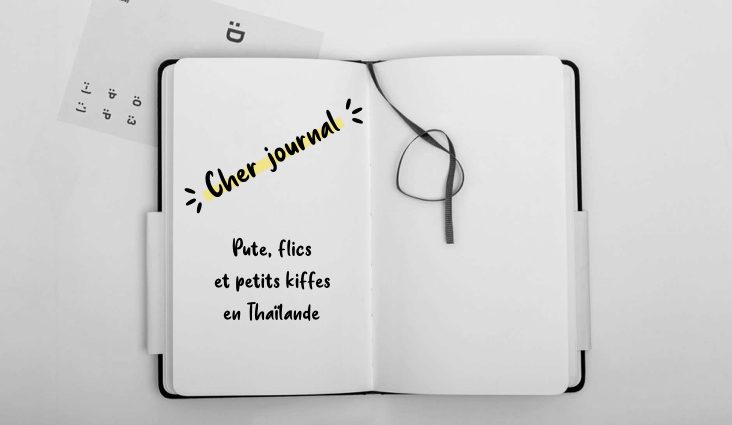 :D
:O :3
:b :P
:-) :')
Cher journal
Pute, flics
et petits kiffes
en Thaïlande